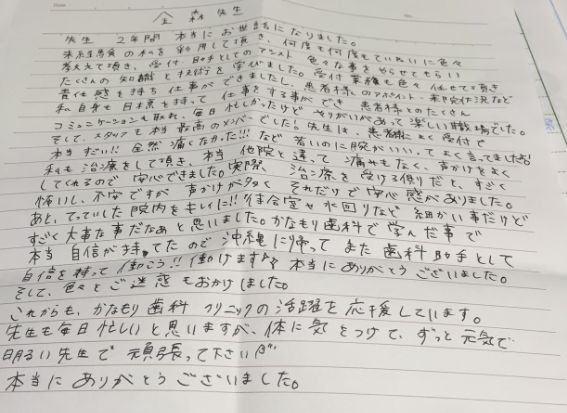 金森先生
先生 2年間 本当にお世話になりました。
未経験の私を採用して頂き、何度も何度もていねいに色々
教えて頂き、受付、助手としてのアシスト 色々な事をやらせてもらい
たくさんの知識と技術を学びました。受付業務も色々任せて頂き
責任感を持ち仕事ができましたし、患者様のアポイント・来院状況など
私自身も目標を持って仕事をする事ができ 患者様とのたくさん
コミュニケーションも取れ、毎日忙しかったけどやりがいがあって楽しい職場でした。
そして、スタッフも本当最高のメンバーでした。先生は患者様によく受付で
本当すごい!! 全然痛くなかった!!など 若いのに腕がいい、ってよく言ってましたよ!!
私も治療をして頂き、本当 他院と違って 痛みもなく、声かけをよく
してくれるので安心できました。実際、治療を受ける側りだと、すごく
怖いし、不安ですが 声かけが多く それだけで安心感がありました。
あと、てっていした院内をキレイに!! 待合室や水回りなど 細かい事だけど
すごく大事な事だなぁと思いました。かなもり歯科で学んだ事で
本当 自信が持てたので沖縄に帰ってまた歯科助手として
自信を持って働こう!! 働けます 本当にありがとうございました。
そして、色々とご迷惑もおかけしました。
これからも、かなもり歯科クリニックの活躍を応援しています。
先生も毎日忙しいと思いますが、体に気をつけて、ずっと元気で
明るい先生で 頑張って下さい
本当にありがとうございました。